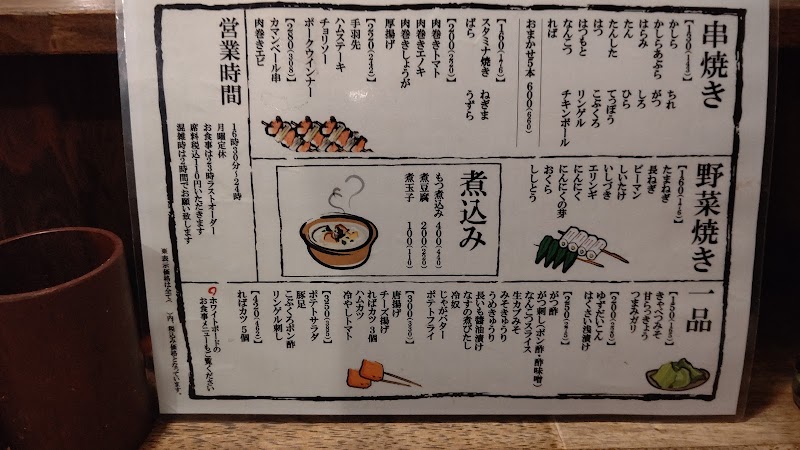 串焼き
かしら
かしらあぶら
はらみ
たん
たんした
はつ
はつもと
なんこつ
れば
ちれ
がつ
しろ
ひら
てっぽう
こぶくろ
リンゲル
チキンボール
おまかせ5本 600(660)
【160(176)】
スタミナ焼き
ばら
ねぎま
うずら
【200(220)】
肉巻きトマト
肉巻きエノキ
肉巻きしょうが
厚揚げ
【220(242)】
手羽先
ハムステーキ
チョリソー
ポークウインナー
【280(308)】
カマンベール串
肉巻きエビ
野菜焼き
【160(176)】
たまねぎ
長ねぎ
ピーマン
しいたけ
いしづき
エリンギ
にんにく
にんにくの芽
おくら
ししとう
煮込み
もつ煮込み 400(440)
煮豆腐 200(220)
煮玉子 100(110)
一品
きゃべつみそ
甘らっきょう
つまみガリ
ゆずだいこん
はくさい浅漬け
がつ酢
がつ刺し(ポン酢・酢味噌)
なんこつスライス
生カブみそ
みそきゅうり
うめきゅうり
長いも醤油漬け
なすの煮びたし
冷奴
じゃがバター
ポテトフライ
【300(330)】
唐揚げ
チーズ揚げ
ればカツ 3個
ハムカツ
冷やしトマト
【350(385)】
ポテトサラダ
豚足
こぶくろポン酢
リンゲル刺し
ればカツ 5個
ホワイトボードの
お食事メニューもご覧ください
営業時間
16時30分〜24時
月曜定休
お食事は23時ラストオーダー
席料税込110円いただきます
混雑時は2時間でお願い致します
内、税込み価格となっています。